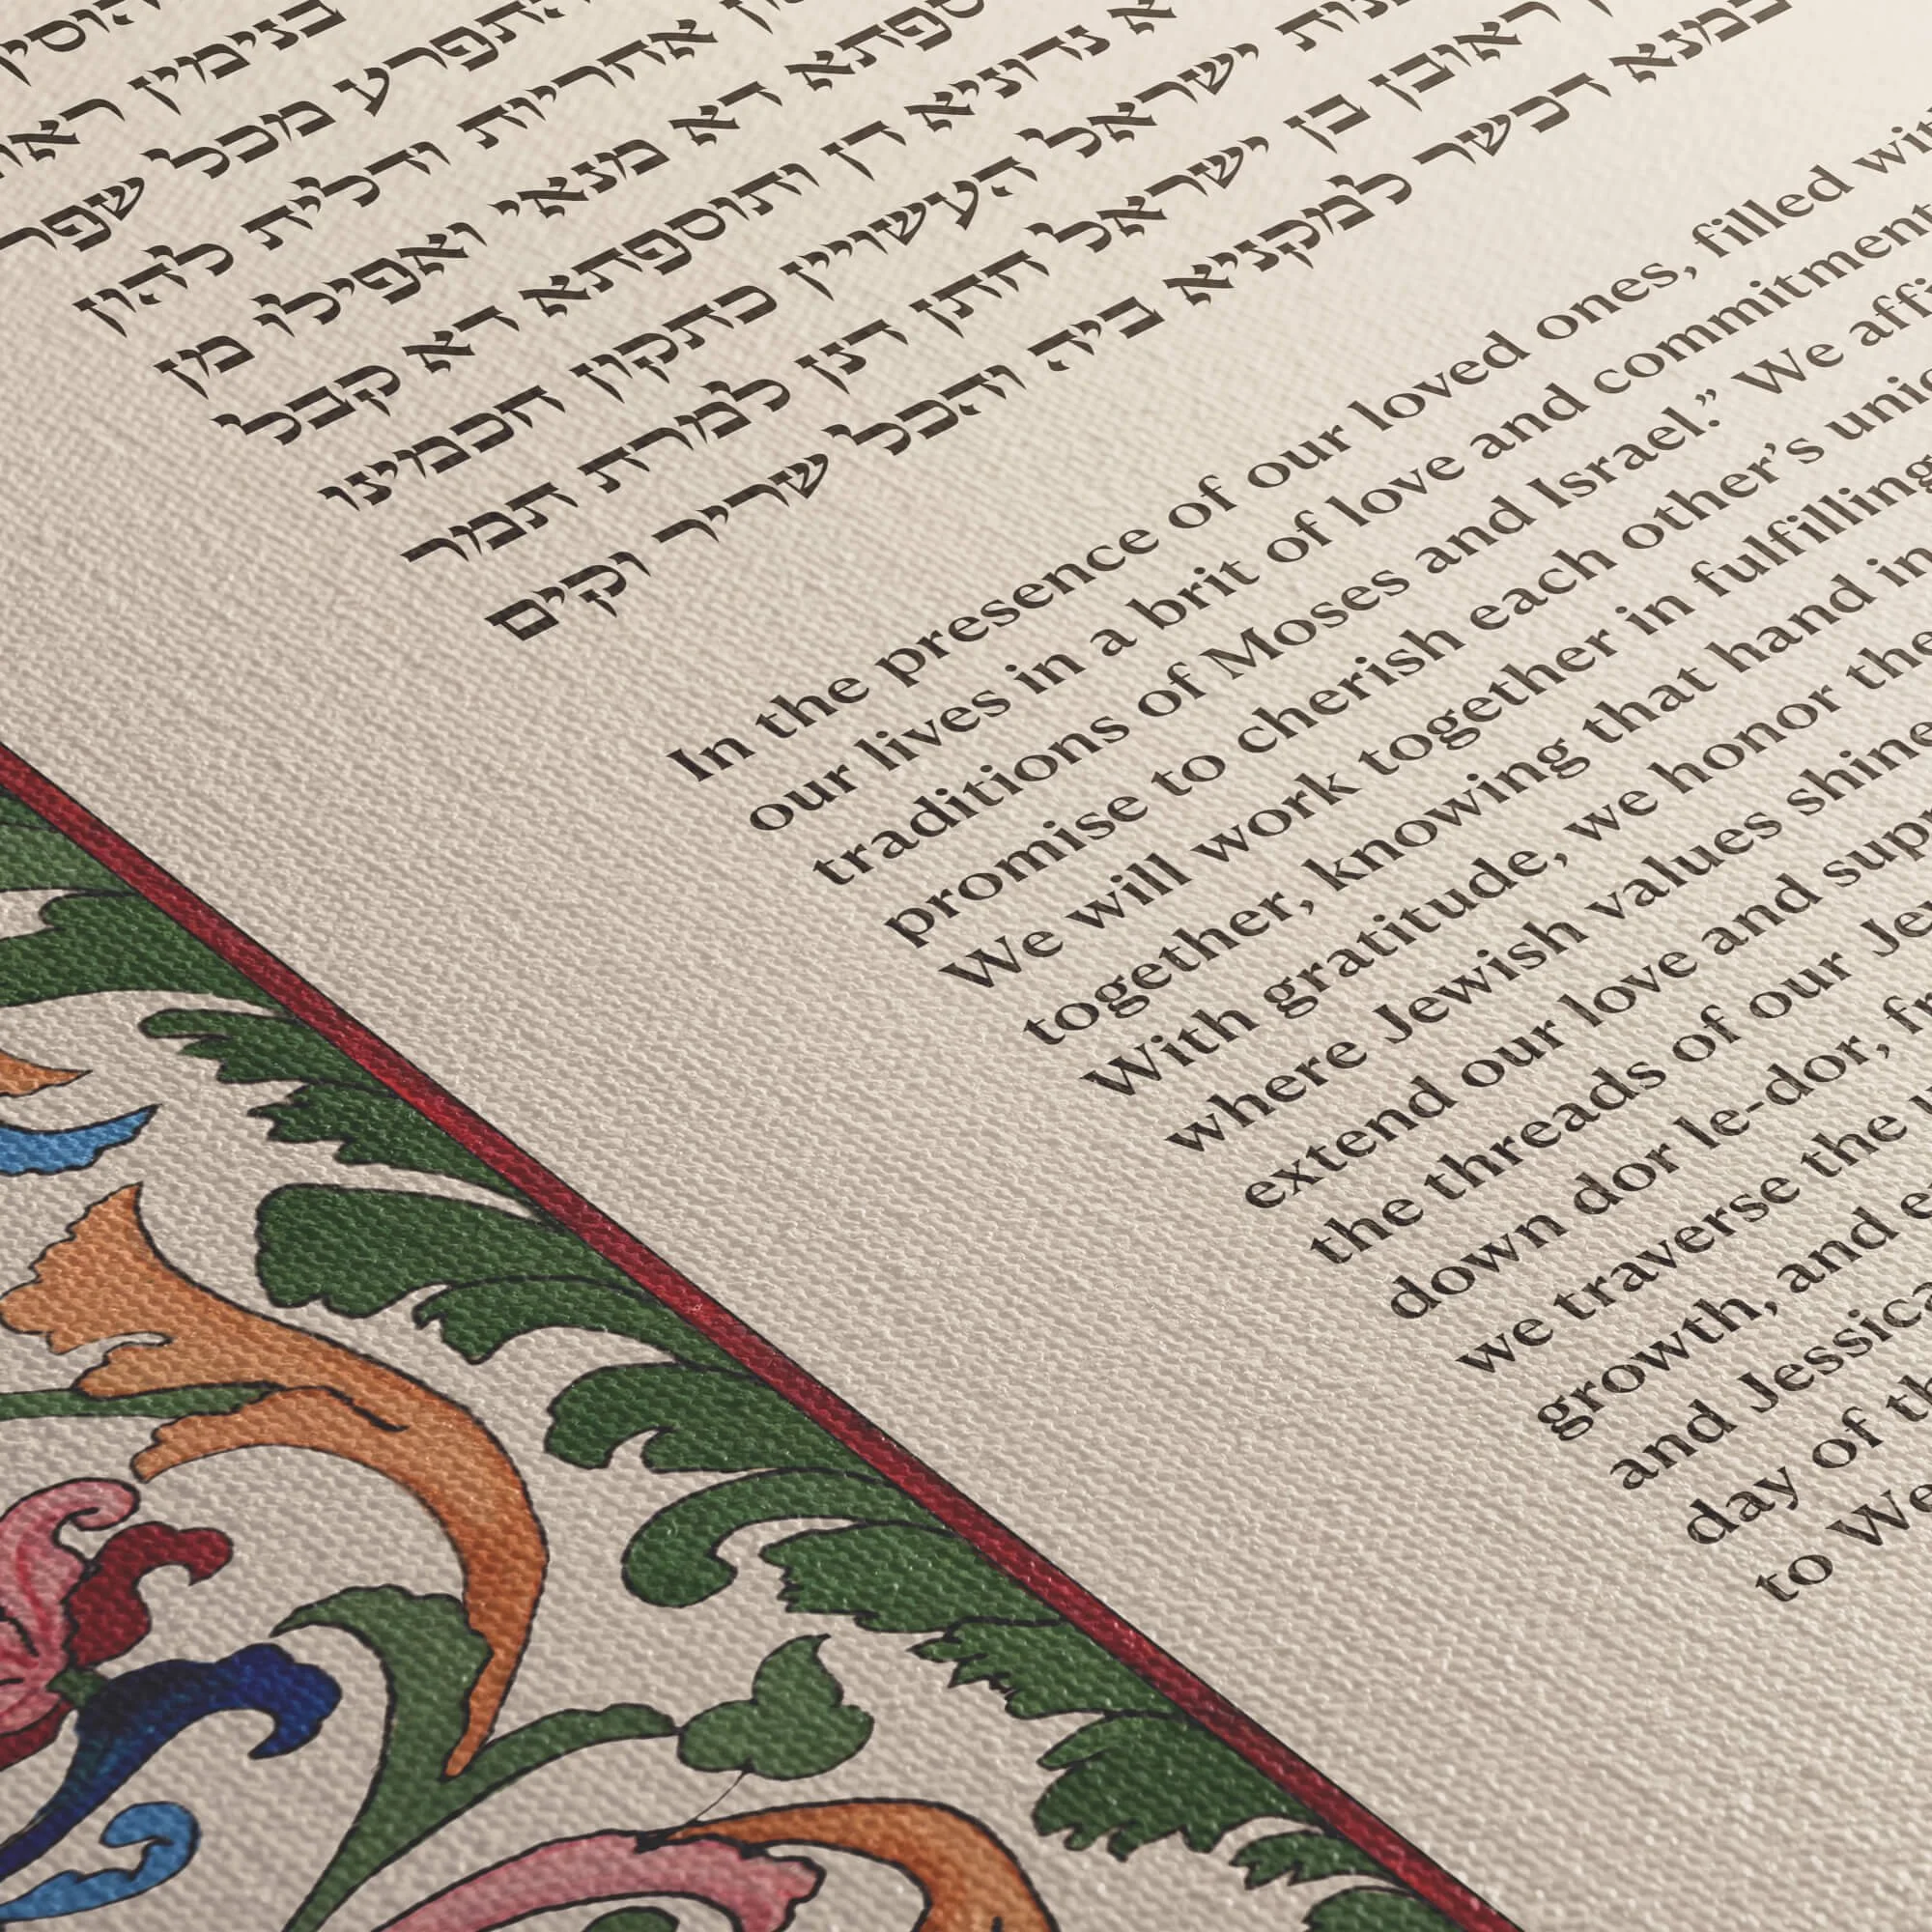 בנימין
להתפרע מכל שפר
אחריות ודלית להון
ספתא דא מנאי ואפילו מן
נדוניא דן ותוספתא דא קבל
ישראל העשויין כתקון חכמינו
ראובן בן ישראל חתן דנן למרת תמר
במנא דכשר למקניא ביה והכל שריר וקים
In the presence of our loved ones, filled wit
our lives in a brit of love and commitment
traditions of Moses and Israel.” We affi
promise to cherish each other’s uni
We will work together in fulfilling
together, knowing that hand in
With gratitude, we honor the
where Jewish values shine
extend our love and supp
the threads of our Je
down dor le-dor, fr
we traverse the
growth, and e
and Jessica
day of th
to We